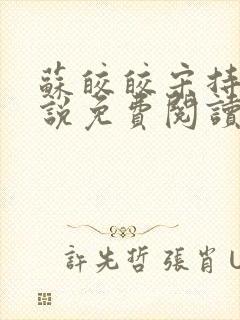 蘇皎皎宋持
說免費閱讀
許先哲 張肖U